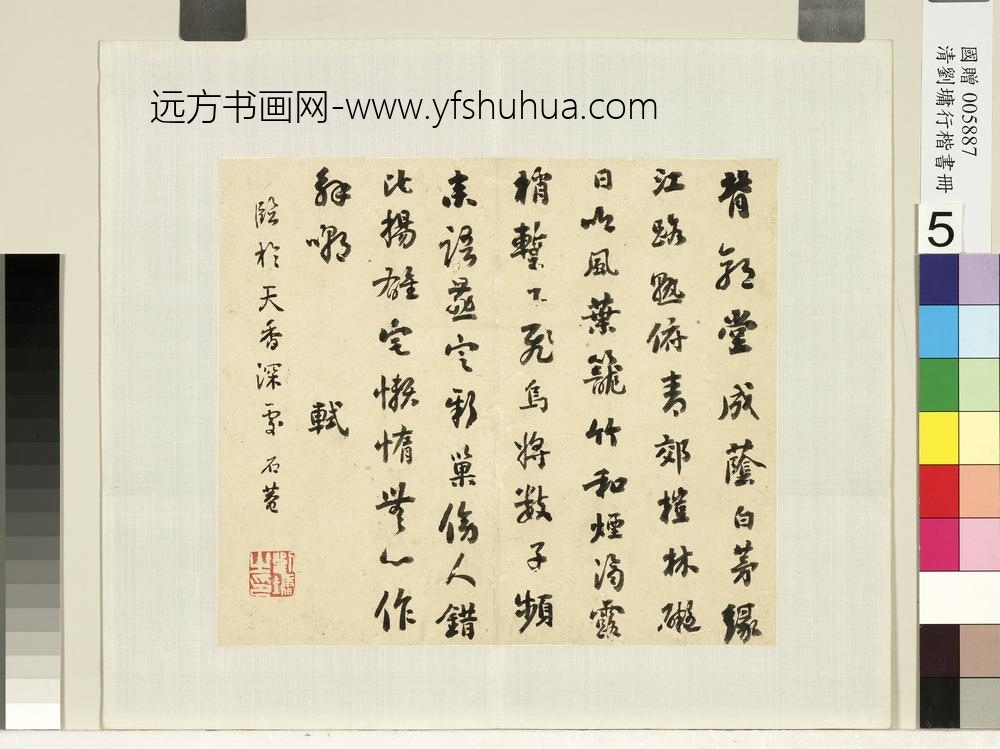 远方书画网-www.yfshuhua.com
國贈 005887
清劉墉行楷書冊
5
背郭堂成蔭白茅緣
江路熟俯青郊榿林礙
日吟風葉籠竹和煙滴露
梢暫下飛烏將數子頻
來語燕定新巢傍人錯
比揚雄宅懶惰無心作
解嘲 軾
臨於天香深處 石菴
劉墉之印